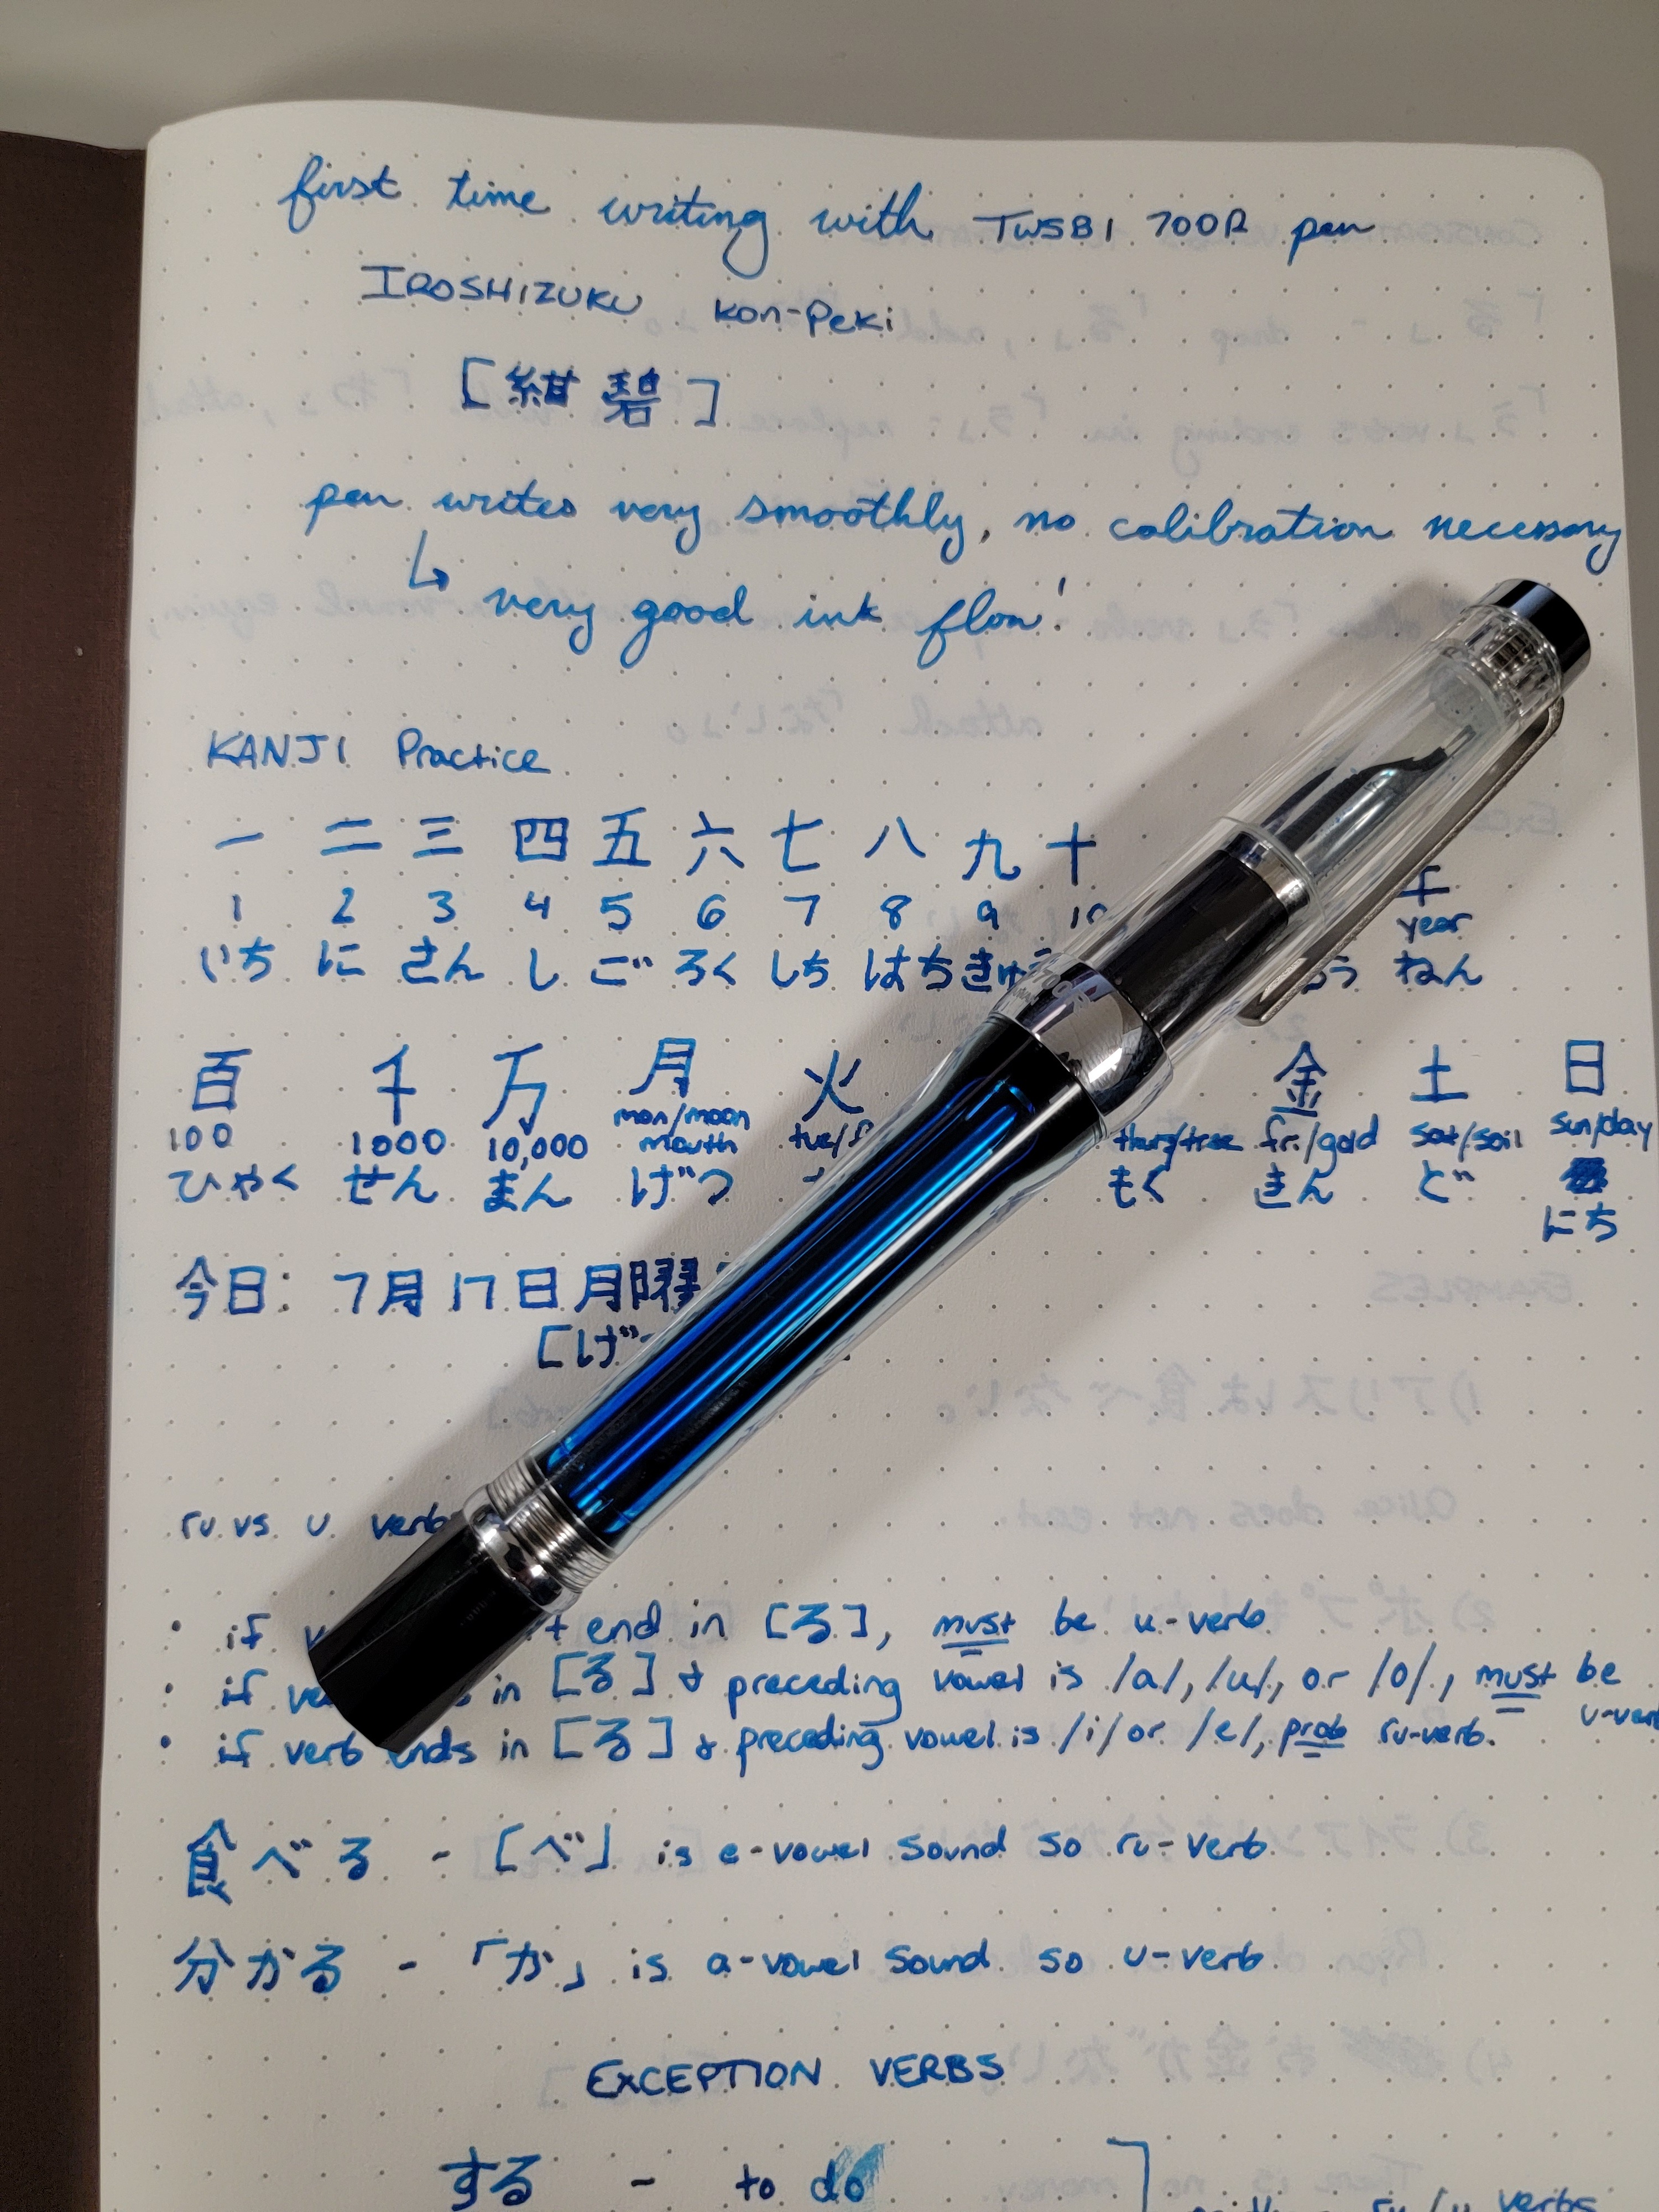 first time writing with TWSBI 700R pen
IROSHIZUKU kon-peki
[紺碧]
pen writes very smoothly, no calibration necessary
↳ very good ink flow!
KANJI Practice
一 二 三 四 五 六 七 八 九 十
1 2 3 4 5 6 7 8 9 10 year
いち に さん し ご ろく しち はち きゅう ねん
百 千 万 月 火 金 土 日
100 1000 10,000 mon/moon month thurs/tree fri/gold sat/soil sun/day
ひゃく せん まん げつ もく きん ど
にち
今日: 7月17日月曜
[げ
ru vs u verb
• if end in [る], must be u-verb
• if in [る] & preceding vowel is /a/, /u/, or /o/, must be
u-verb
• if verb ends in [る] & preceding vowel is /i/ or /e/, prob ru-verb.
食べる - [べ」 is e-vowel sound so ru-verb
分かる - 「か」 is a-vowel sound so u-verb
EXCEPTION VERBS
する - to do
ru/u verbs